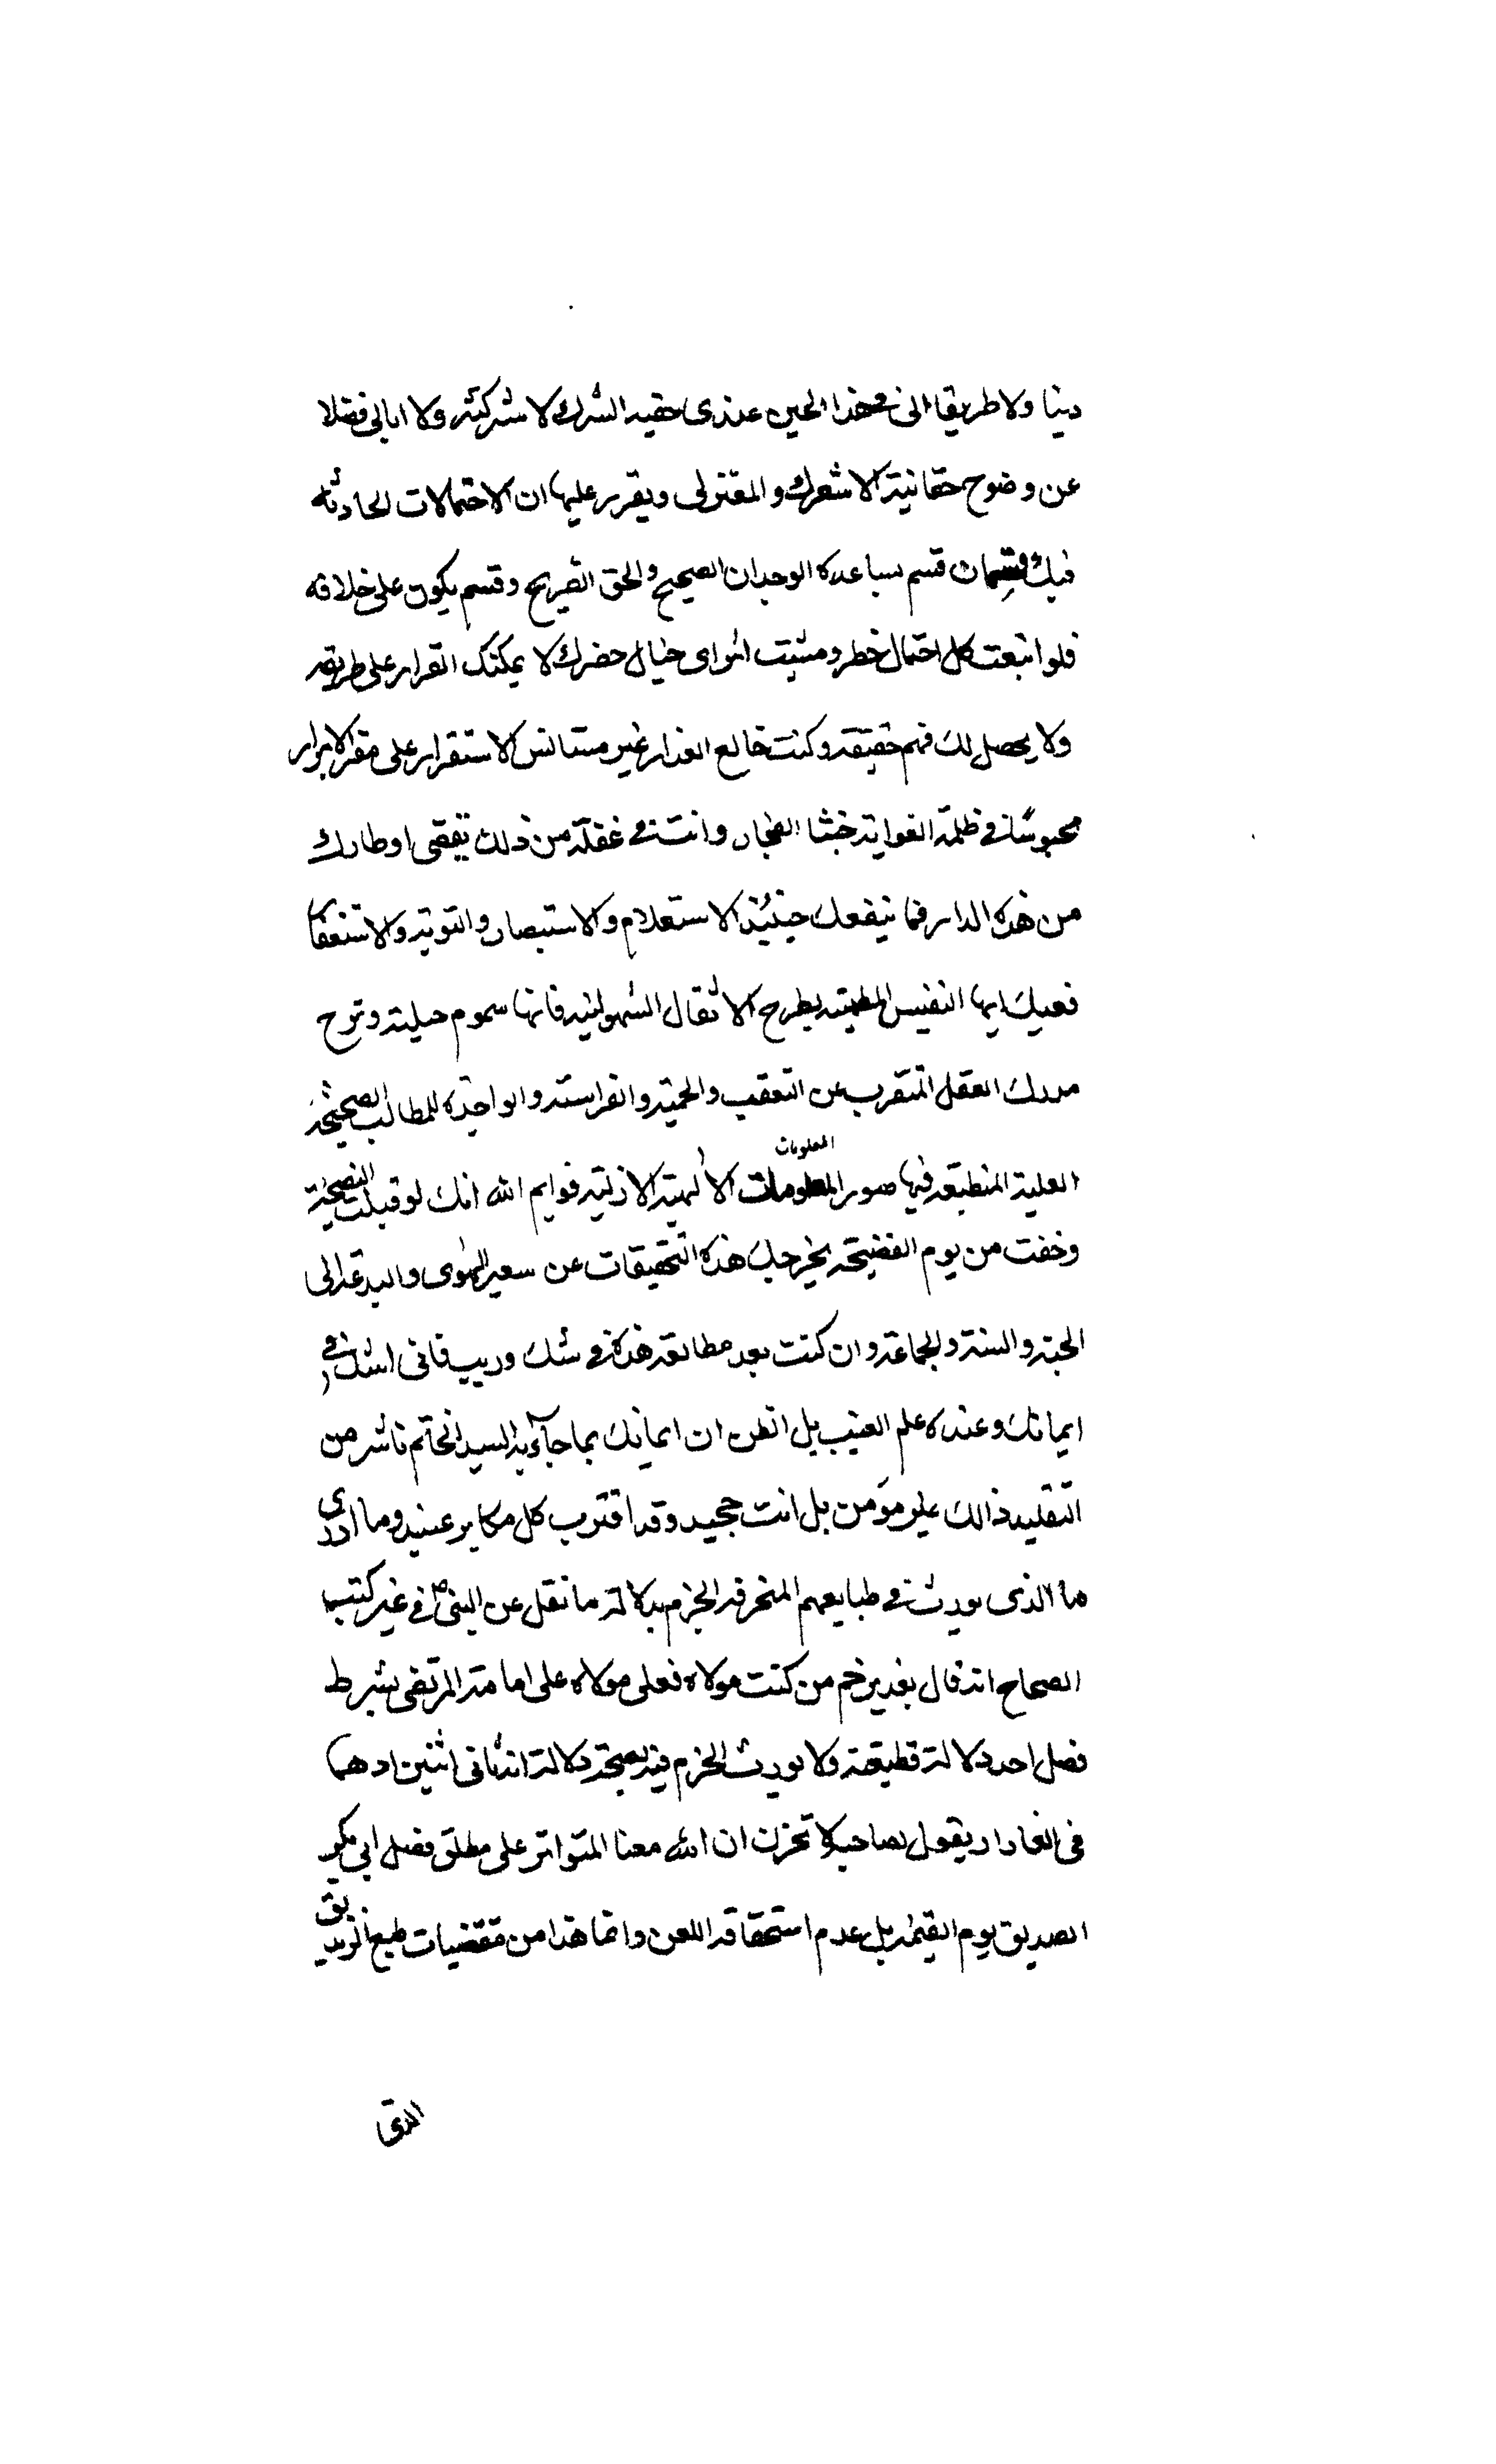 دينا ولا طريقا الى هذا الحين عندى حقيه الشرك لا شركته ولا ابالى فضلا
عن وضوح حقانية الاشعرى و المعتزلى ويقرر عليها ان الاحتمالات الحادثه
فيك قسمان قسم يساعده الوجدان الصحيح والحق الصريح وقسم يكون على خلافه
فلو اتبعت كل احتمال خطر ومشيت اثر اى خيال حضرك لا يمكنك القرار على طريقه
ولا يحصل لك فهم حقيقه وكنت خالع العذار غير مستانس الاستقرار على مقر الابرار
محبوسًا فى ظلمة الغواية خبثا الفجار وانت فى غفلة من ذلك تقضى اوطارك
من هذه الدار فما ينفعك حينئذ الاستعلام والاستبصار والتوبة والاستغفار
فعليك ايها النفيس بطرح الاثقال فانها سموم وتروح
مدرك العقل المتقرب عن التعقب والحمية والفراسة والواجده للمطالب الصحيحة
العلية المنطبعة فيها صور المعلومات المعلومات الالهية الازلية فوايم الله انك لو قبلت النصيحة
وخفت من يوم الفضيحة يخرجك هذه التحقيقات عن سعير الهوى والبدعة الى
الجنة والسنة والجماعة وان كنت بعد مطالعة هذه فى شك وريب فانى اشك فى
ايمانك وعنده علم الغيب بل اظن ان ايمانك بما جاء به السيد الخاتم ناش من
التقليد ذالك غير مؤمن بل انت جحيد وقد اقترب كل مكابر عنيد وما ادرى
ما الذى يورث فى طبايعهم المنحرفة الجزم بدلالة ما نقل عن النبىؐ فى غير كتب
الصحاح انه قال بغدير خم من كنت مولاه فعلى مولاه على امامة المرتضى بشرط
فصل احد دلالة قطيعة ولا يورث الجزم فيه بصحة دلالة انه ثانى اثنين اذ هما
فى الغار اذ يقول لصاحبه لا تحزن ان الله معنا المتواتر على مطلق فضل ابى بكر
الصديق يوم القيمة بل عدم استحقاقه اللعن وانما هذا من مقتضيات طبع الزنديق
الذى